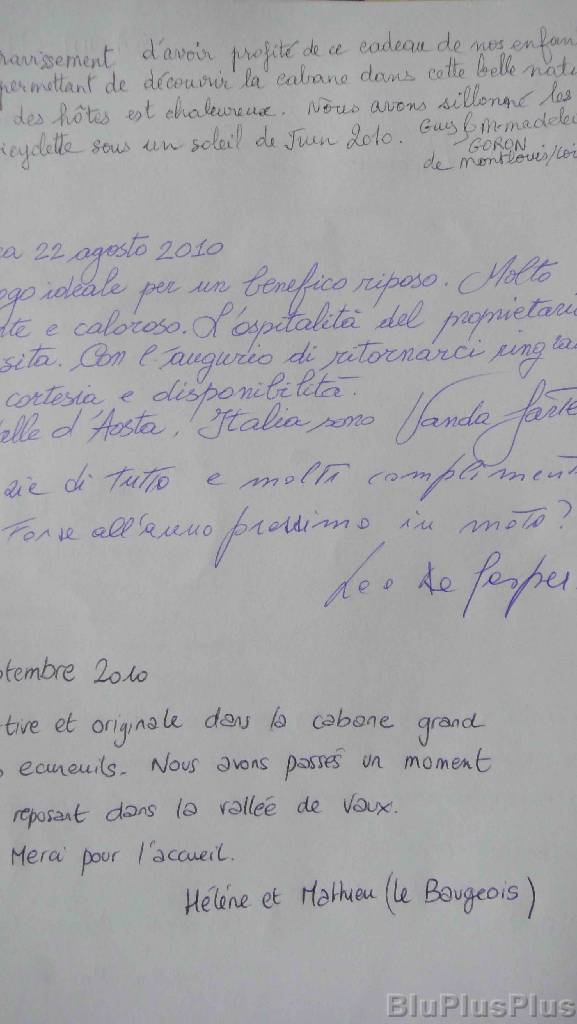 ravissement d'avoir profité de ce cadeau de nos enfan
permettant de découvrir la cabane dans cette belle natu
des hôtes est chaleureux. Nous avons sillonné les
icyclette sous un soleil de Juin 2010. Guy & M-madelei
GORON
de Montlouis/Loi
22 agosto 2010
ogo ideale per un benefico riposo. Molto
te e caloroso. L'ospitalità del proprietari
sita. Con l'augurio di ritornarci ringra
cortesia e disponibilità.
alle d'Aosta, Italia sono Vanda
zie di tutto e molti compliment
Forse all'anno prossimo in moto?
Leo De Gasper
ptembre 2010
tive et originale dans la cabane grand
ecureuils. Nous avons passés un moment
reposant dans la vallée de Vaux.
Merci pour l'accueil.
Hélène et Mathieu (le Baugeois)
BluPlusPlus